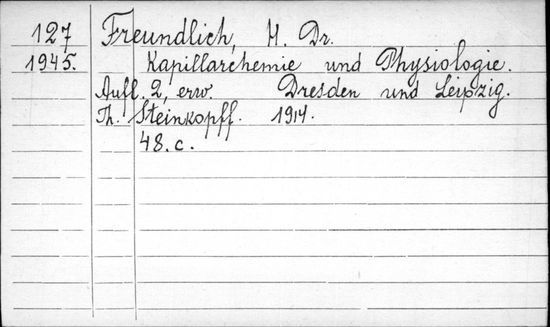 127 Freundlich, H. Dr.
1945. Kapillarchemie und Physiologie.
Aufl. 2, erw. Dresden und Leipzig.
Th. Steinkopff. 1914.
48. c.